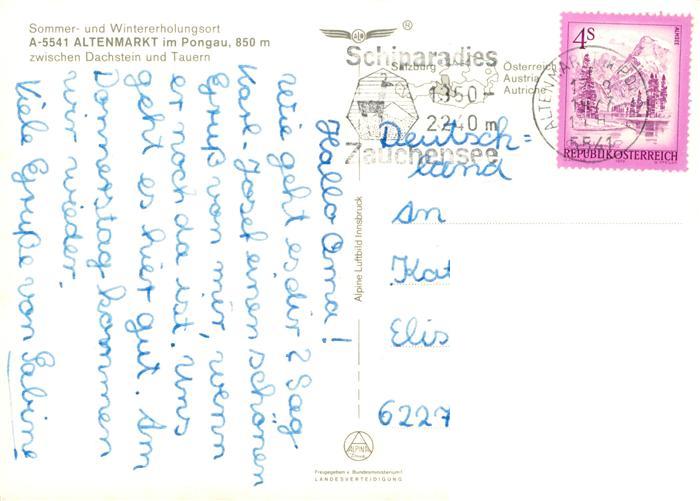 Sommer- und Wintererholungsort
A-5541 ALTENMARKT im Pongau, 850 m
zwischen Dachstein und Tauern
Hallo Oma!
Wie geht es dir? Sag
Karl-Josef einen schönen
Gruß von mir, wenn
er noch da ist. Uns
geht es hier gut. Am
Donnerstag kommen
wir wieder.
Viele Grüße von Sabine
Alpine Luftbild Innsbruck
ALPINA
Freigegeben v. Bundesministerium f.
LANDESVERTEIDIGUNG
®
Schiparadies
Salzburg
1350-
2240 m
Zauchensee
Österreich
Austria
Autriche
4S
ALMSEE
REPUBLIK ÖSTERREICH
ALTENMARKT
5541
Deutsch=
land
An
Kat
Elis
6227